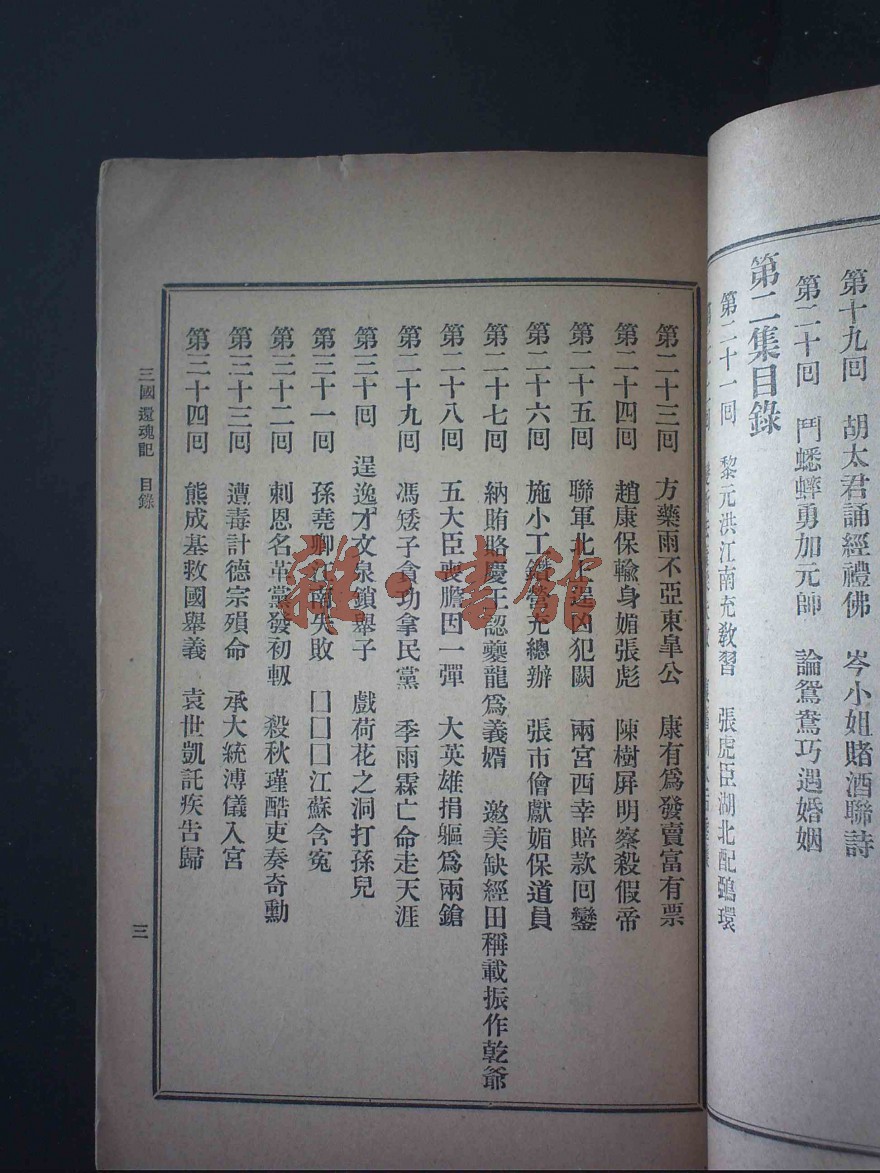 第十九回 胡太君誦經禮佛 岑小姐賭酒聯詩
第二十回 鬥蟋蟀勇加元帥 論鴛鴦巧遇婚姻
第二集目錄
第二十一回 黎元洪江南充教習 張虎臣湖北配鴉環
第二十三回 方藥雨不亞東皐公 康有爲發賣富有票
第二十四回 趙康保輸身媚張彪 陳樹屏明察殺假帝
第二十五回 聯軍北上逞凶犯闕 兩宮西幸賠款回鑾
第二十六回 施小工鑽營充總辦 張市儈獻媚保道員
第二十七回 納賄賂慶王認夔龍爲義婿 邀美缺經田稱載振作乾爺
第二十八回 五大臣喪膽因一彈 大英雄捐軀爲兩鎗
第二十九回 馮矮子貪功拿民黨 季雨霖亡命走天涯
第三十回 逞逸才文泉鎖舉子 戲荷花之洞打孫兒
第三十一回 孫堯卿江南失敗 囗囗囗江蘇含寃
第三十二回 刺恩名革黨發初軔 殺秋瑾酷吏奏奇勳
第三十三回 遭毒計德宗殞命 承大統溥儀入宮
第三十四回 熊成基救國舉義 袁世凱託疾告歸
三國還魂記 目錄
三
雜·書館